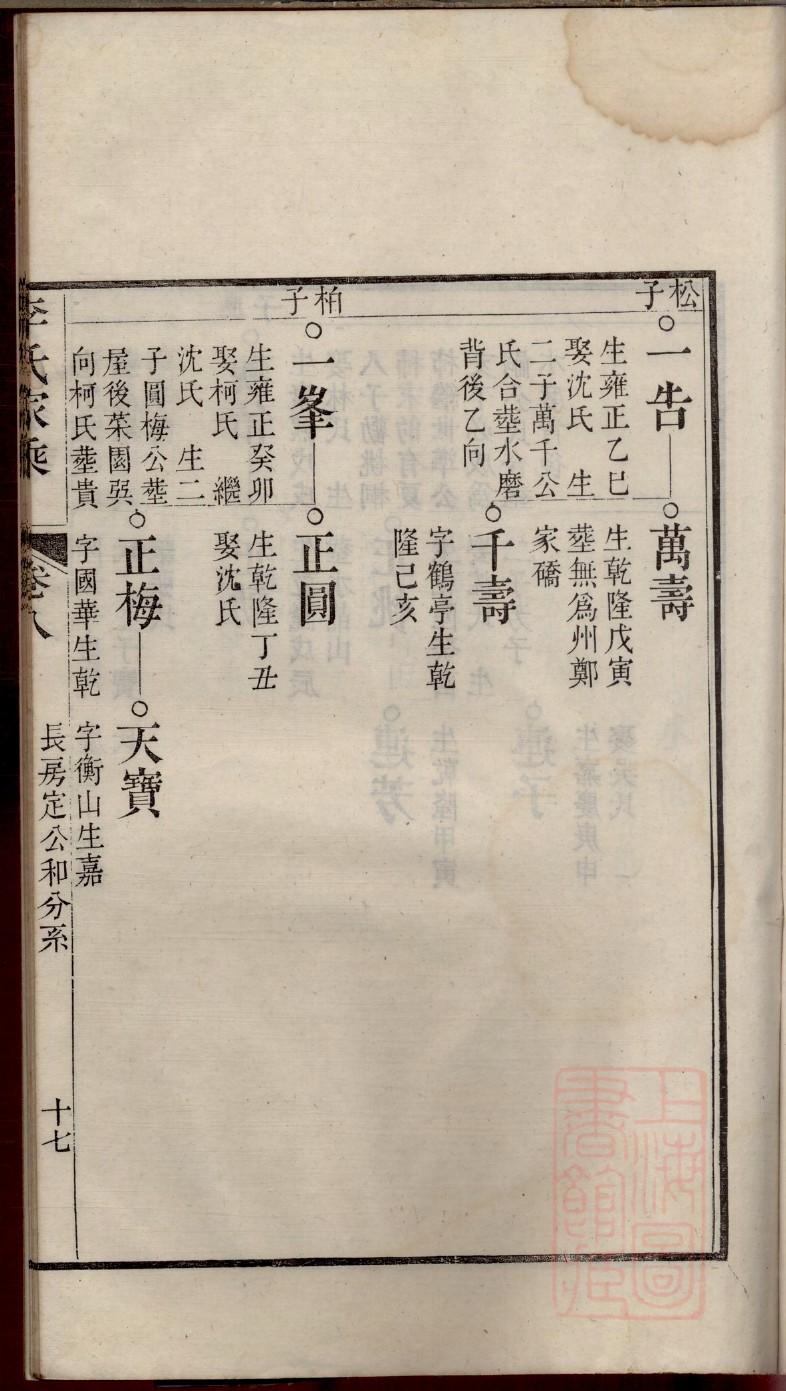 松子
一告
生雍正乙巳
娶沈氏　生
二子萬千公
氏合塟水磨
背後乙向
萬壽
生乾隆戊寅
塟無為州鄭
家礄
千壽
字鶴亭生乾
隆己亥
柏子
一峯
生雍正癸卯
娶柯氏　繼
沈氏　生二
子圓梅公塟
屋後菜園吳
向柯氏塟貴
正圓
生乾隆丁丑
娶沈氏
正梅
字國華生乾
天寶
字衡山生嘉
李氏家乘
卷八
長房定公和分系
十七
上海圖書館藏